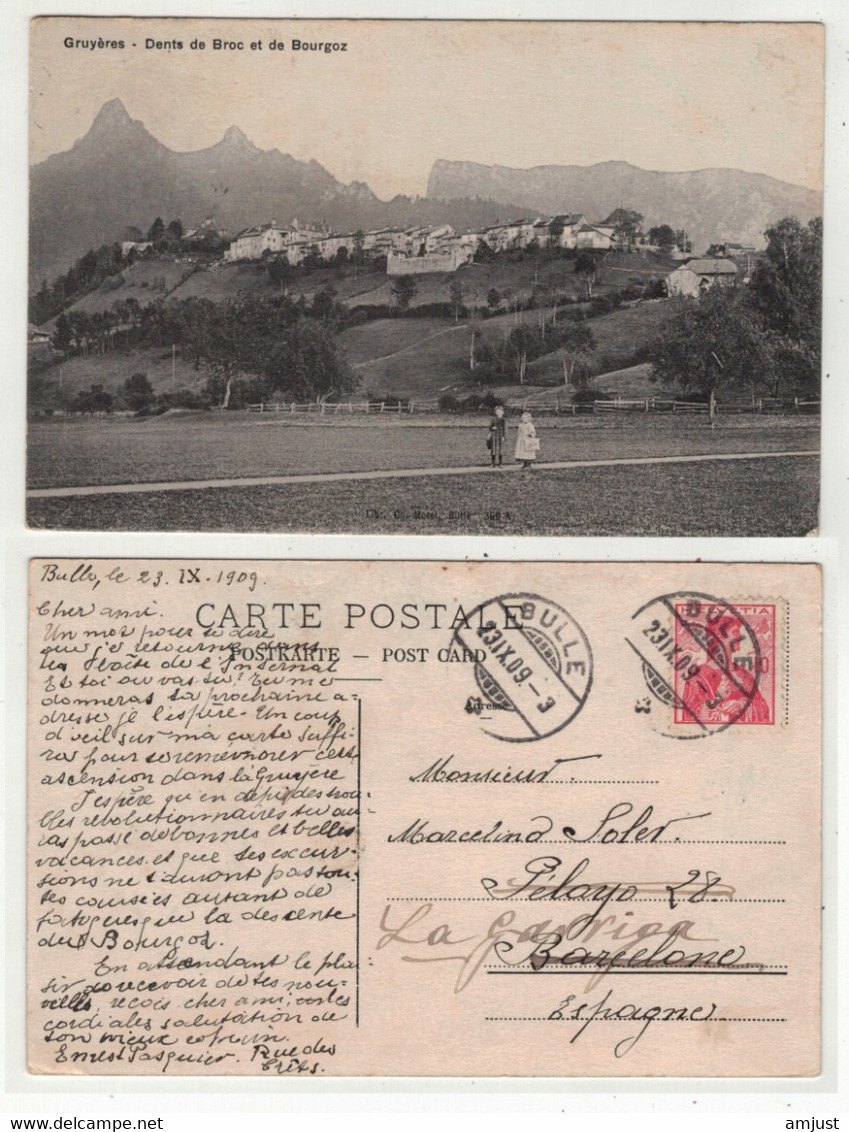 Gruyères - Dents de Broc et de Bourgoz
Libr. Ch. Morel, Bulle 399 A
Bulle, le 23. IX. 1909.
CARTE POSTALE
POSTKARTE — POST CARD
Adresse
BULLE
23.IX.09.-3
BULLE
23.IX.09.-3
HELVETIA
10
Cher ami.
Un mot pour te dire
que je retourne dans
la
de l'Internat
Et toi ou vas tu? Tu me
donneras ta prochaine a-
dresse je l'espère. Un coup
d'œil sur ma carte suffi-
ra pour te remémorer cette
ascension dans la Gruyère
J'espère qu'en depit des trou-
bles revolutionnaires tu au-
ras passé de bonnes et belles
vacances et que tes excur-
sions ne t'auront pas tou-
tes causées autant de
fatigues que la descente
du Bourgoz.
En attendant le plai-
sir de recevoir de tes nou-
velles, reçois cher ami, les
cordiales salutation de
ton vieux copain.
Ernest Pasquier. Rue des
Crêts.
Monsieur.
Marcelino Soler.
Pélayo 28.
La Garriga
Barcelone
Espagne
delcampe.net
amjust